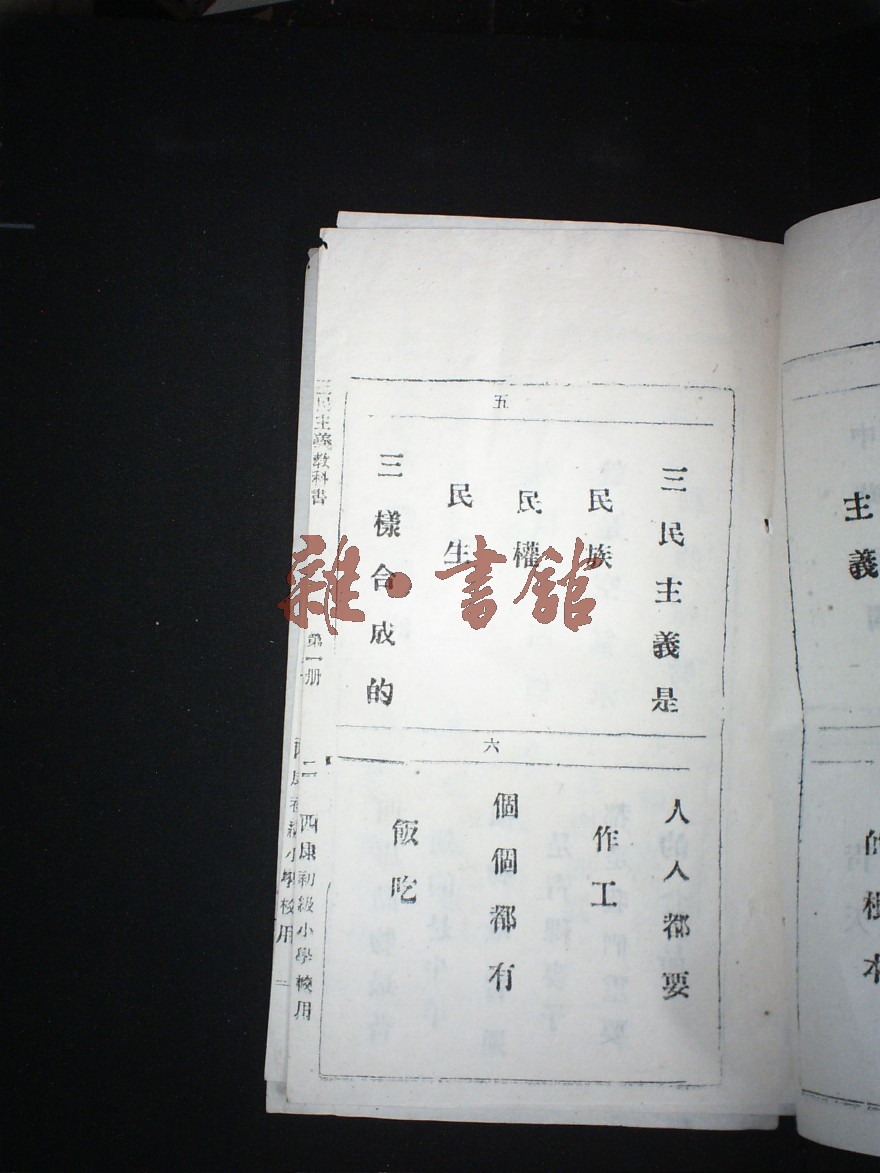 主義
的根本
五
三民主義是
民族
民權
民生
三樣合成的
六
人人都要
作工
個個都有
飯吃
三民主義教科書 第一册 二 西康初級小學校用
小學校用
雜·書館